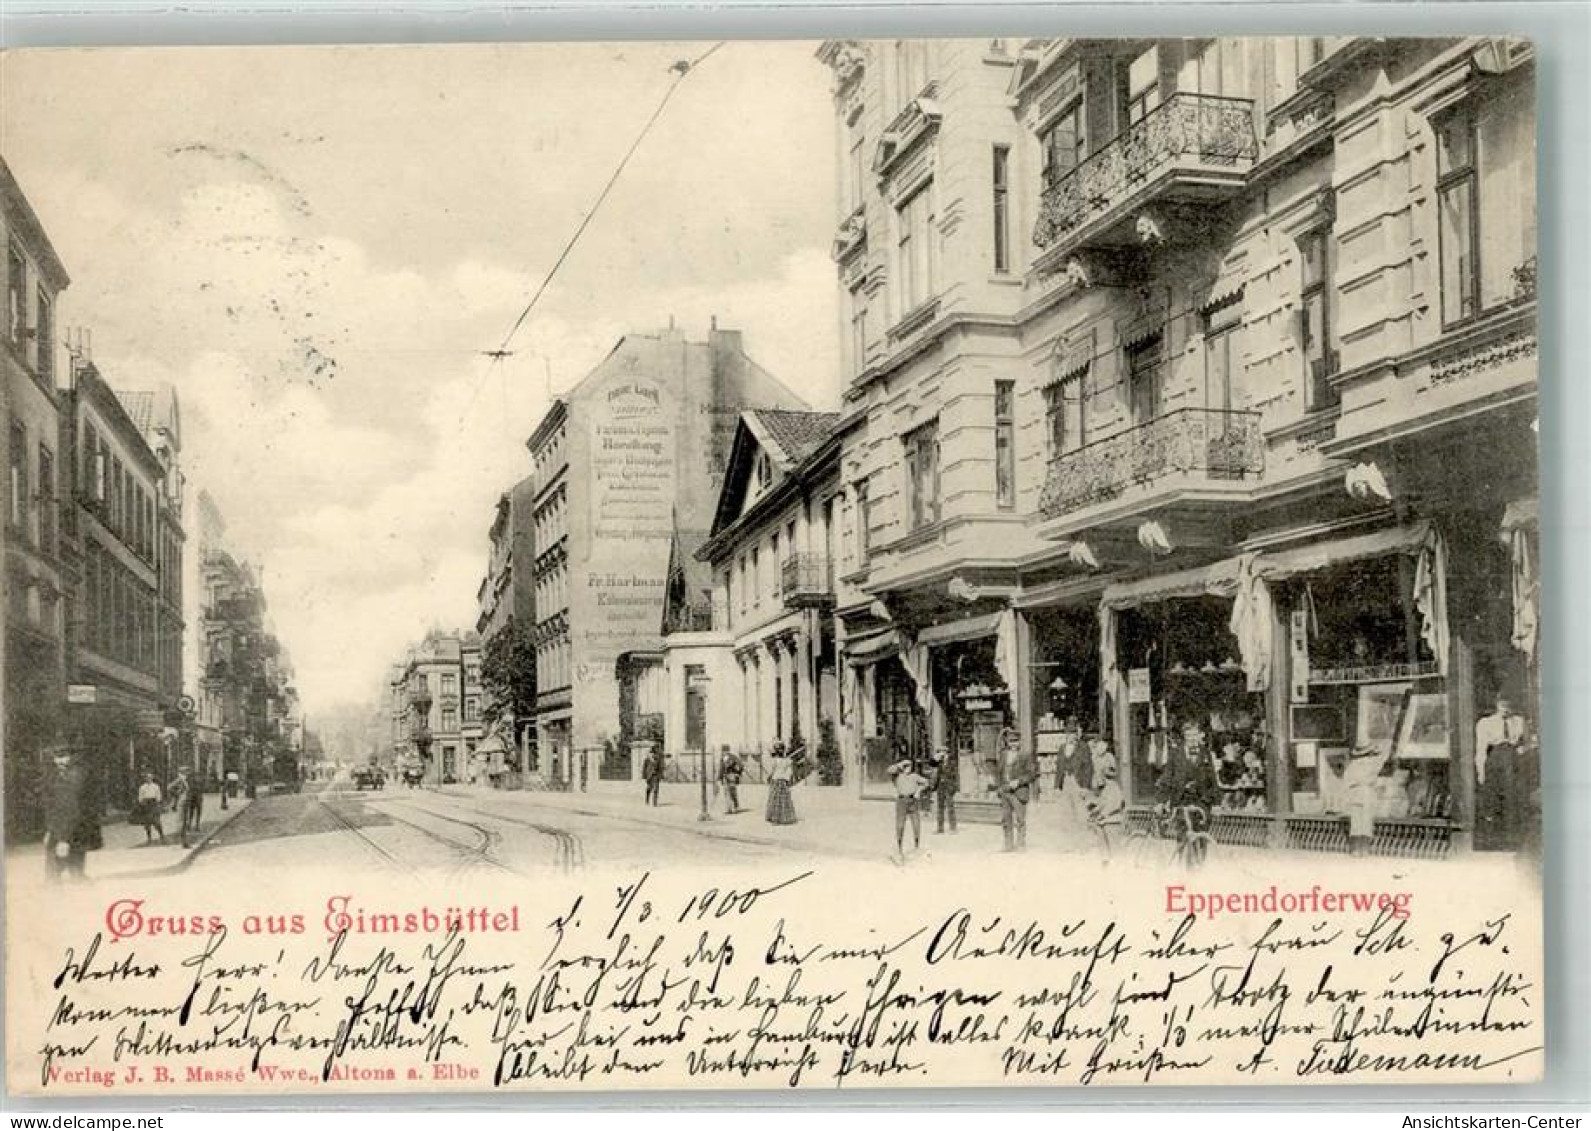 Fr. Hartman
Handlung
Gruss aus Eimsbüttel
Eppendorferweg
d. 7/3. 1900
Werter Herr! Danke Ihnen herzlich, daß Sie mir Auskunft über Frau Sch. zu-
kommen ließen. Hoffe, daß Sie und die lieben Ihrigen wohl sind, Trotz der ungünsti-
gen Witterungsverhältnisse. Hier bei uns in Hamburg ist alles krank; 1/3 meiner Schülerinnen
bleibt dem Unterricht fern. Mit Grüßen A. Tiedemann.
Verlag J. B. Massé Wwe., Altona a. Elbe
www.delcampe.net
mw-ak
Ansichtskarten-Center